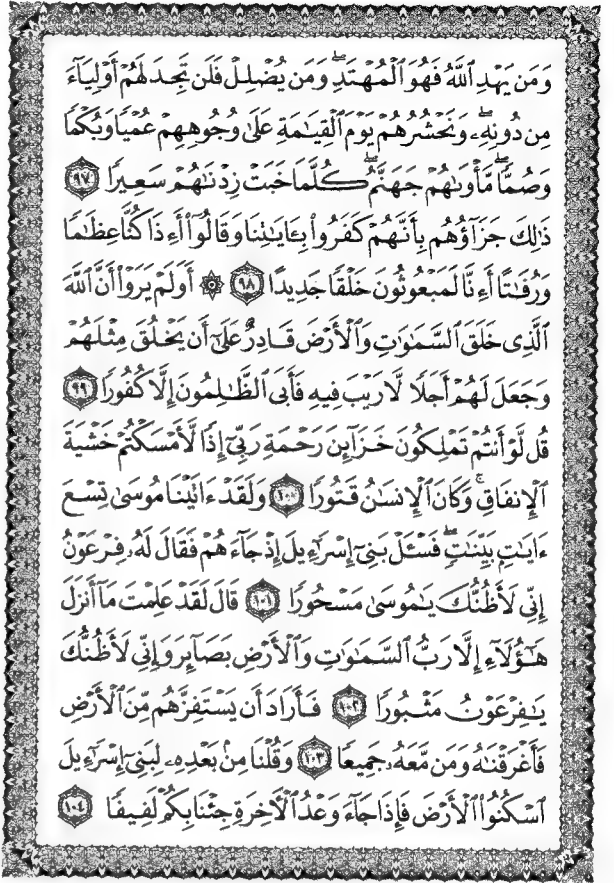 وَمَن يَهْدِ ٱللَّهُ فَهُوَ ٱلْمُهْتَدِ ۖ وَمَن يُضْلِلْ فَلَن تَجِدَ لَهُمْ أَوْلِيَآءَ
مِن دُونِهِۦ ۖ وَنَحْشُرُهُمْ يَوْمَ ٱلْقِيَٰمَةِ عَلَىٰ وُجُوهِهِمْ عُمْيًا وَبُكْمًا
وَصُمًّا ۖ مَّأْوَىٰهُمْ جَهَنَّمُ ۖ كُلَّمَا خَبَتْ زِدْنَٰهُمْ سَعِيرًا ٩٧
ذَٰلِكَ جَزَآؤُهُم بِأَنَّهُمْ كَفَرُوا۟ بِـَٔايَٰتِنَا وَقَالُوٓا۟ أَءِذَا كُنَّا عِظَٰمًا
وَرُفَٰتًا أَءِنَّا لَمَبْعُوثُونَ خَلْقًا جَدِيدًا ٩٨ ۞ أَوَلَمْ يَرَوْا۟ أَنَّ ٱللَّهَ
ٱلَّذِى خَلَقَ ٱلسَّمَٰوَٰتِ وَٱلْأَرْضَ قَادِرٌ عَلَىٰٓ أَن يَخْلُقَ مِثْلَهُمْ
وَجَعَلَ لَهُمْ أَجَلًا لَّا رَيْبَ فِيهِ فَأَبَى ٱلظَّٰلِمُونَ إِلَّا كُفُورًا ٩٩
قُل لَّوْ أَنتُمْ تَمْلِكُونَ خَزَآئِنَ رَحْمَةِ رَبِّىٓ إِذًا لَّأَمْسَكْتُمْ خَشْيَةَ
ٱلْإِنفَاقِ ۚ وَكَانَ ٱلْإِنسَٰنُ قَتُورًا ١٠٠ وَلَقَدْ ءَاتَيْنَا مُوسَىٰ تِسْعَ
ءَايَٰتٍۭ بَيِّنَٰتٍ ۖ فَسْـَٔلْ بَنِىٓ إِسْرَٰٓءِيلَ إِذْ جَآءَهُمْ فَقَالَ لَهُۥ فِرْعَوْنُ
إِنِّى لَأَظُنُّكَ يَٰمُوسَىٰ مَسْحُورًا ١٠١ قَالَ لَقَدْ عَلِمْتَ مَآ أَنزَلَ
هَٰٓؤُلَآءِ إِلَّا رَبُّ ٱلسَّمَٰوَٰتِ وَٱلْأَرْضِ بَصَآئِرَ وَإِنِّى لَأَظُنُّكَ
يَٰفِرْعَوْنُ مَثْبُورًا ١٠٢ فَأَرَادَ أَن يَسْتَفِزَّهُم مِّنَ ٱلْأَرْضِ
فَأَغْرَقْنَٰهُ وَمَن مَّعَهُۥ جَمِيعًا ١٠٣ وَقُلْنَا مِنۢ بَعْدِهِۦ لِبَنِىٓ إِسْرَٰٓءِيلَ
ٱسْكُنُوا۟ ٱلْأَرْضَ فَإِذَا جَآءَ وَعْدُ ٱلْـَٔاخِرَةِ جِئْنَا بِكُمْ لَفِيفًا ١٠٤